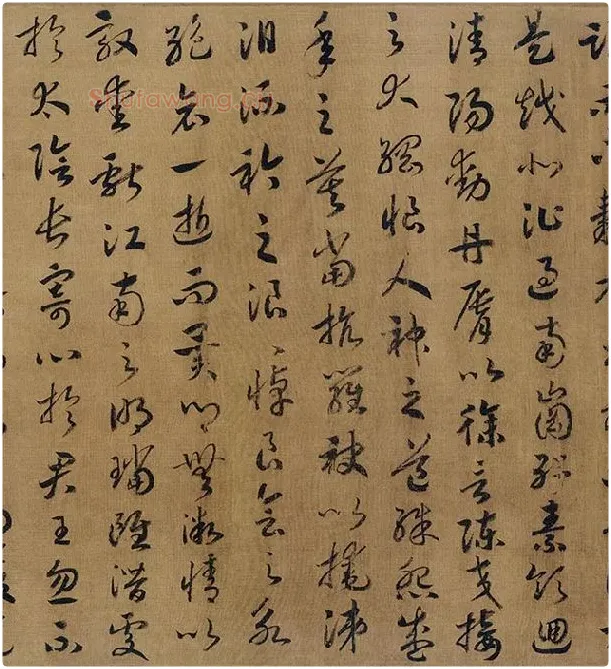 是越北沚過南崗紆素領迴
清陽動丹脣以徐言陳交接
之大綱恨人神之道殊怨盛
年之莫當抗羅袂以掩涕
淚流衿之浪〻悼良會之永
絕哀一逝而異鄉無微情以
效愛獻江南之明璫雖潛處
於太陰長寄心於君王忽不
Shufawang.cn